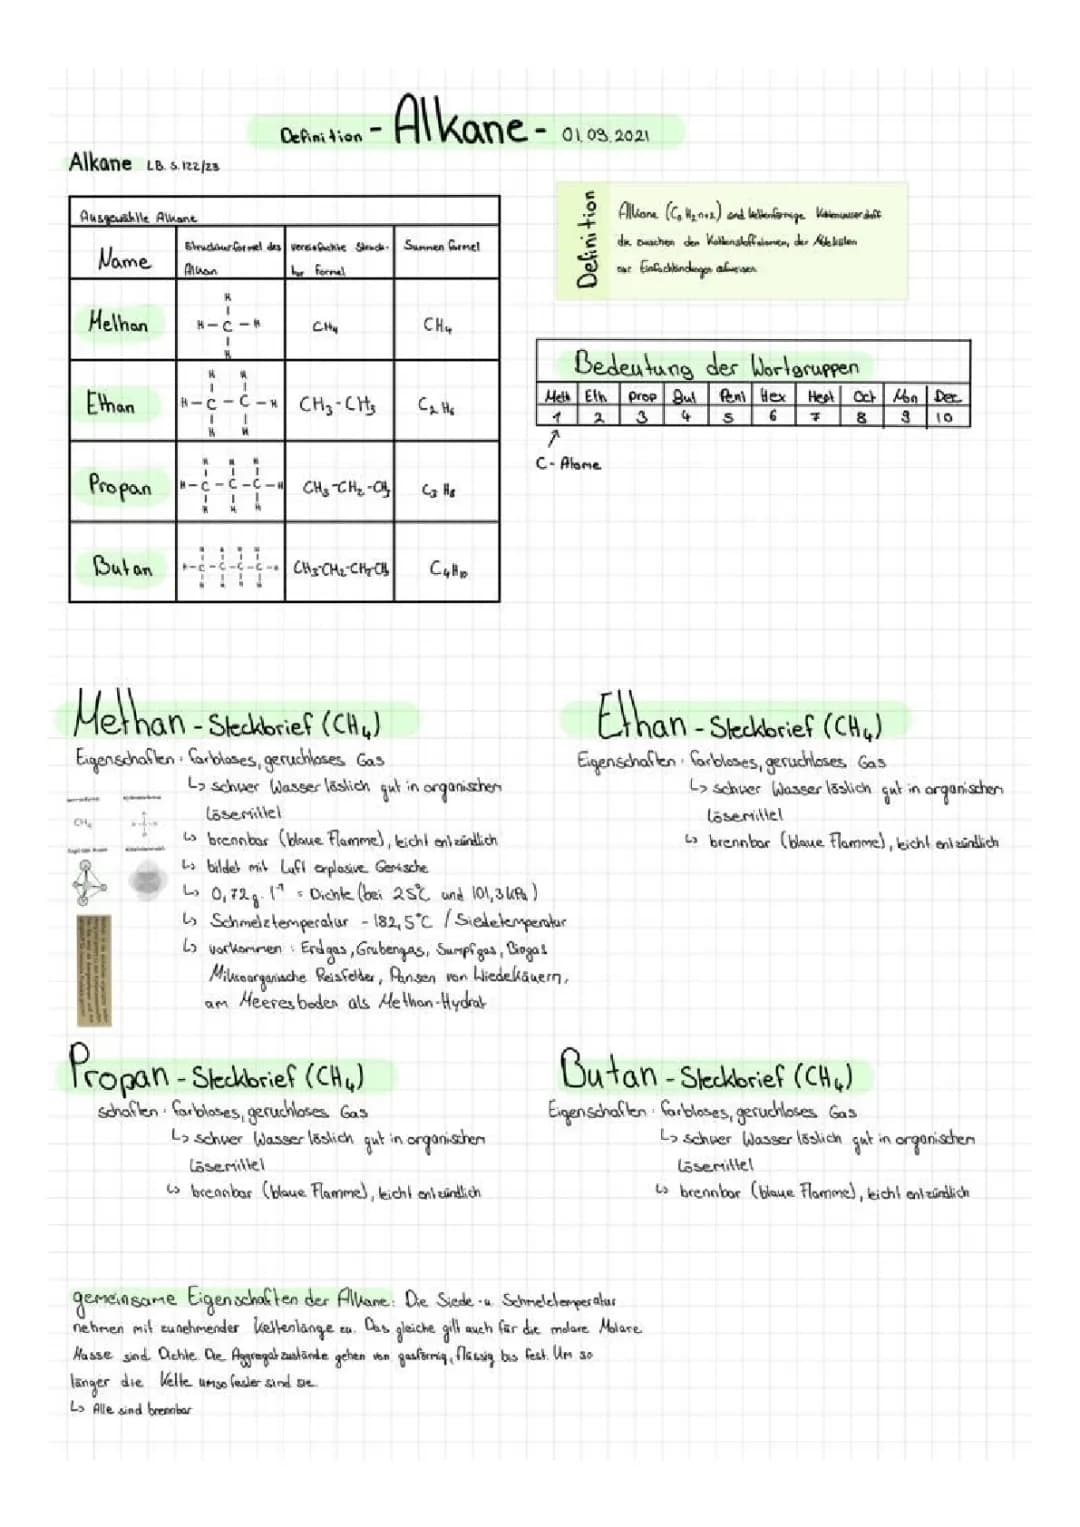 Definition - Alkane - 01.09.2021
Alkane LB. S. 122/23
Ausgewählte Alkane
Name
Strukturformel des Alkan
vereinfachte Struktur formel
Summen formel
Methan
H
H - C - H
H
CH₄
CH₄
Ethan
H H
H - C - C - H
H H
CH₃-CH₃
C₂H₆
Propan
H H H
H - C - C - C - H
H H H
CH₃-CH₂-CH₃
C₃H₈
Butan
H H H H
H - C - C - C - C - H
H H H H
CH₃-CH₂-CH₂-CH₃
C₄H₁₀
Definition
Alkane (CₙH₂n+₂) sind kettenförmige Kohlenwasserstoffe
die zwischen den Kohlenstoffatomen, der Moleküle
nur Einfachbindungen aufweisen
Bedeutung der Wortgruppen
Meth Eth Prop But Pent Hex Hept Oct Non Dec
1 2 3 4 5 6 7 8 9 10
C- Atome
Methan - Steckbrief (CH₄)
Eigenschaften: farbloses, geruchloses Gas
↳ schwer Wasser löslich gut in organischen
Lösemittel
↳ brennbar (blaue Flamme), leicht entzündlich
↳ bildet mit Luft explosive Gemische
↳ 0,72g · l⁻¹ = Dichte (bei 25°C und 101,3 kPa)
↳ Schmelztemperatur - 182,5°C / Siedetemperatur
↳ vorkommen : Erdgas, Grubengas, Sumpfgas, Biogas
Reisfelder, Pansen von Wiederkäuern,
am Meeresboden als Methan-Hydrat
CH₄
Ethan - Steckbrief (CH₄)
Eigenschaften: farbloses, geruchloses Gas
↳ schwer Wasser löslich gut in organischen
Lösemittel
↳ brennbar (blaue Flamme), leicht entzündlich
Propan - Steckbrief (CH₄)
schaften: farbloses, geruchloses Gas
↳ schwer Wasser löslich gut in organischen
Lösemittel
↳ brennbar (blaue Flamme), leicht entzündlich
Butan - Steckbrief (CH₄)
Eigenschaften: farbloses, geruchloses Gas
↳ schwer Wasser löslich gut in organischen
Lösemittel
↳ brennbar (blaue Flamme), leicht entzündlich
gemeinsame Eigenschaften der Alkane: Die Siede -u. Schmelztemperatur
nehmen mit zunehmender Kettenlänge zu. Das gleiche gilt auch für die molare Molare
Masse sind Dichte. Die Aggregatzustände gehen von gasförmig, flüssig bis fest. Um so
länger die Kette umso fester sind sie.
↳ Alle sind brennbar